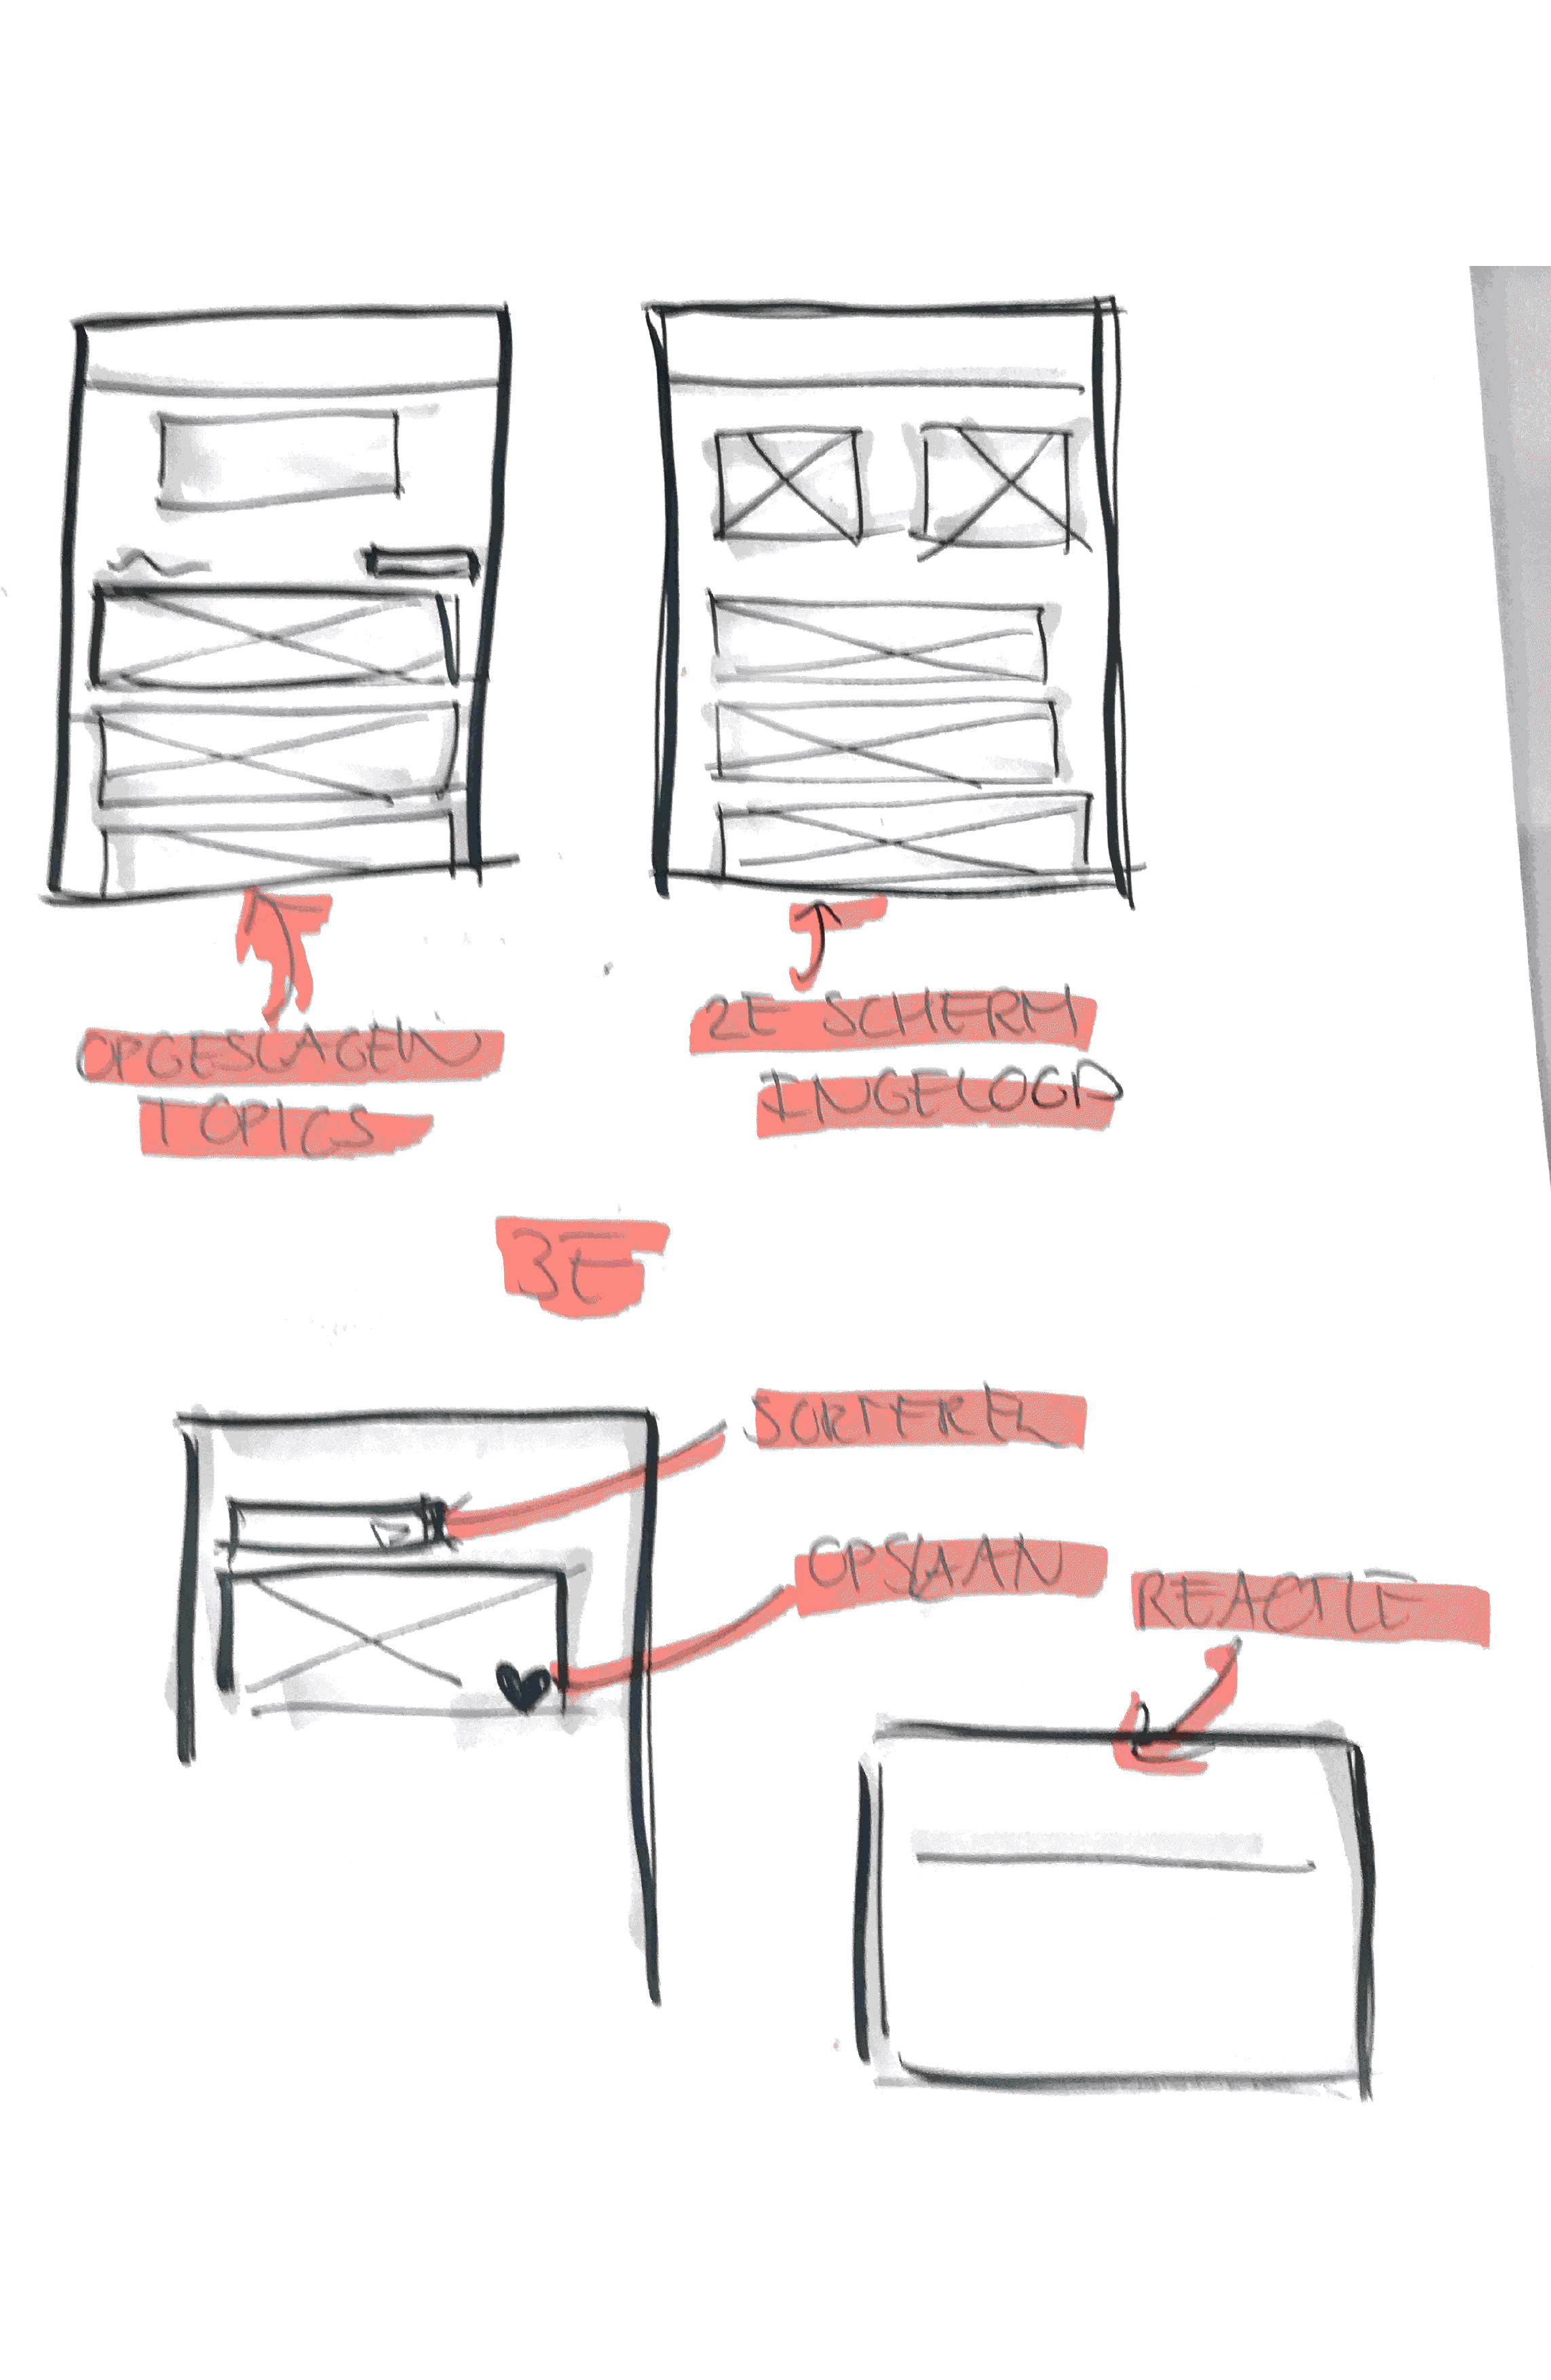 OPGESLAGEN
TOPICS
2E SCHERM
INGELOGD
3E
SORTEREN
OPSLAAN
REACTIE